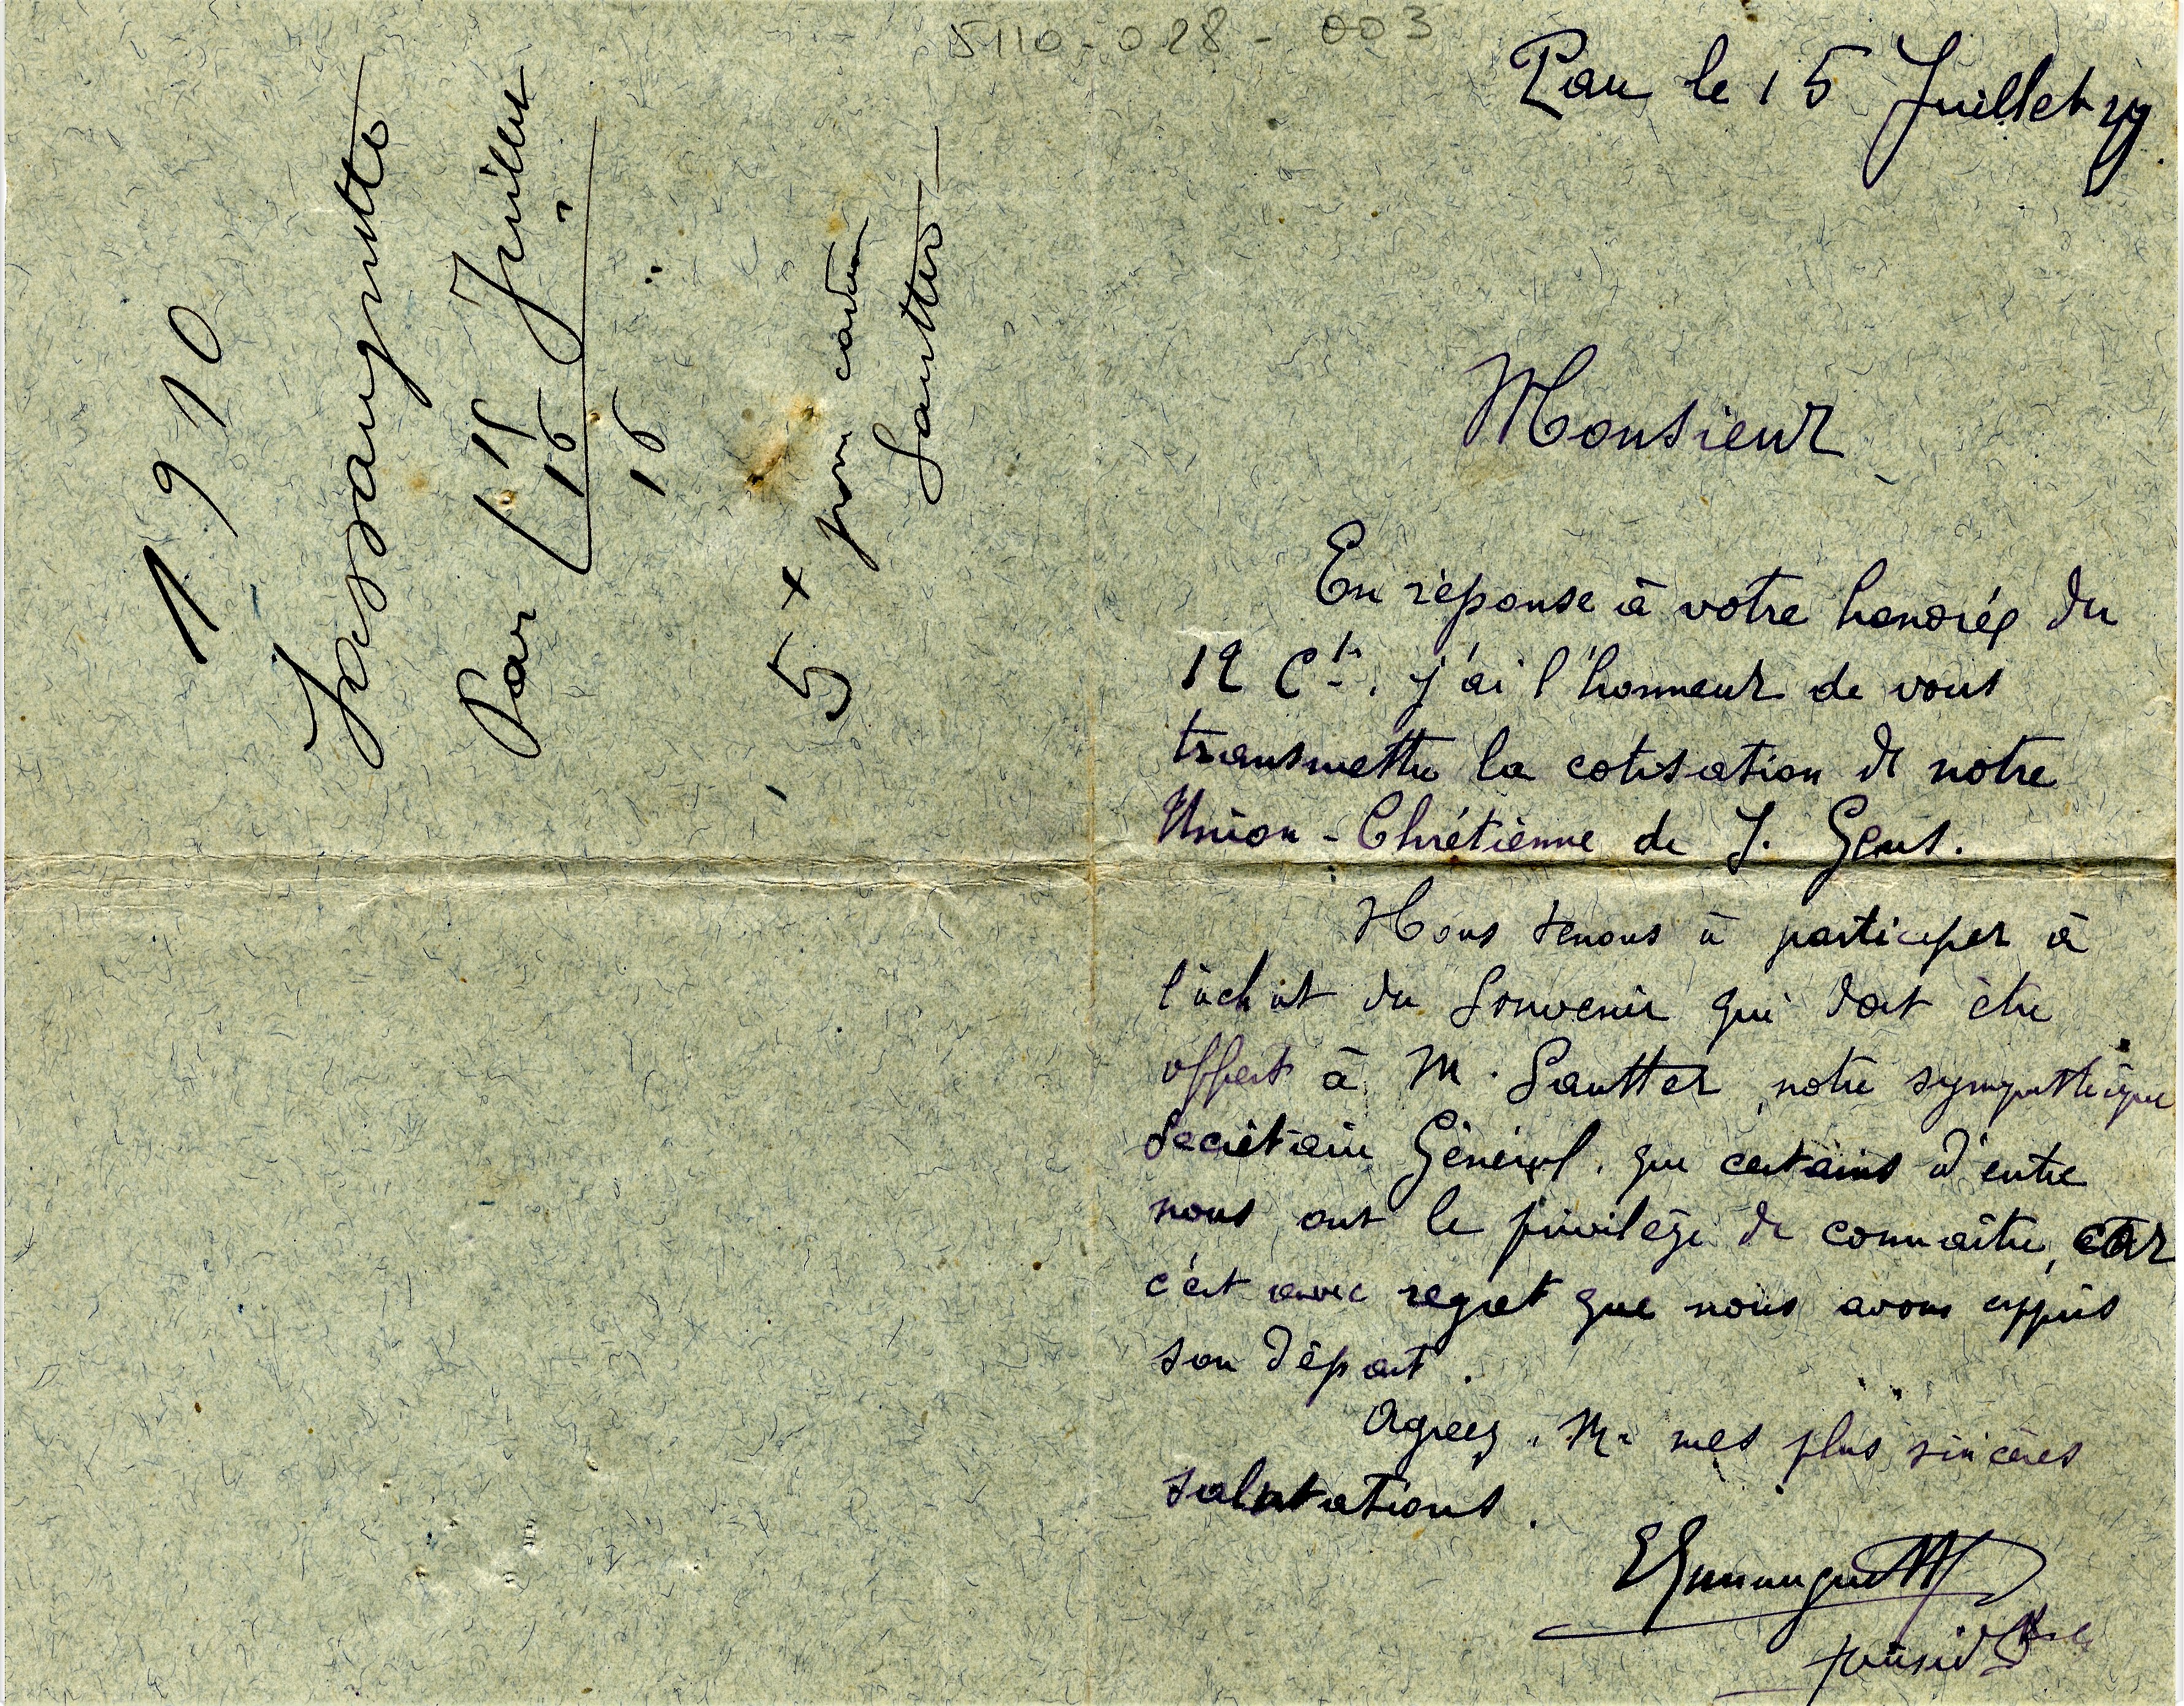 5110-028-003
Pau le 15 Juillet
Monsieur
En réponse à votre honorée du
12 Ct. j'ai l'honneur de vous
transmettre la cotisation de notre
Union-Chrétienne de J. Gens.
Nous tenons à participer à
l'achat du Souvenir qui doit être
offert à M. Sautter, notre sympathique
Secrétaire Général, que certains d'entre
nous ont le privilège de connaître, car
c'est avec regret que nous avons appris
son départ.
Agréez, Mr mes plus sincères
salutations.
1910
Pau 15 Juillet
16 "
16 "
5 x pour cadeau
Sautter